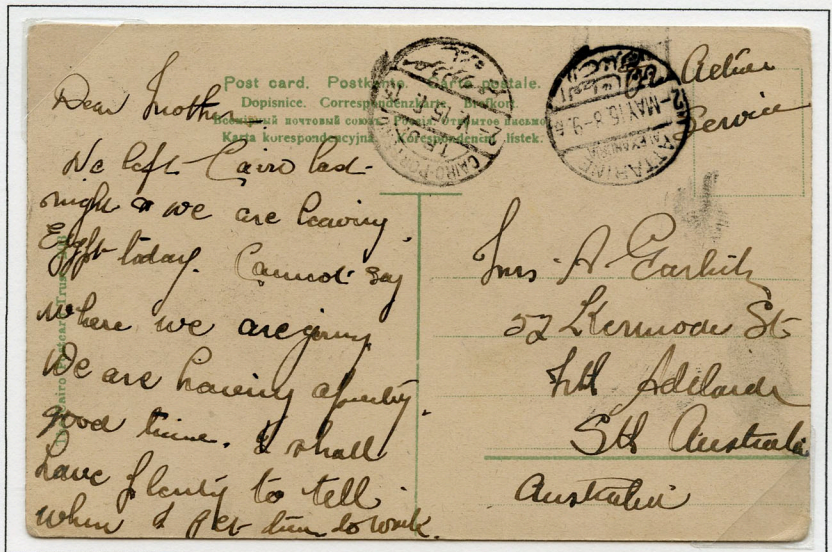 Post card. Postkarte. Carte postale.
Dopisnice. Correspondenzkarte. Brefkort.
Всемірный почтовый союзъ. Россія. Открытое письмо.
Karta korespondencyjna. Korespondenční lístek.
Active
Service
Dear Mother
We left Cairo last
night & we are leaving
Egypt today. Cannot say
where we are going
We are having a pretty
good time. I shall
have plenty to tell
when I get time to write.
Mrs A Garlick
52 Kermode St
Nth Adelaide
Sth Australia
Australia
The Cairo Postcard Trust
CAIRO
2-MAY 15. 8-9.
ATTARINE
ALEXANDRIA